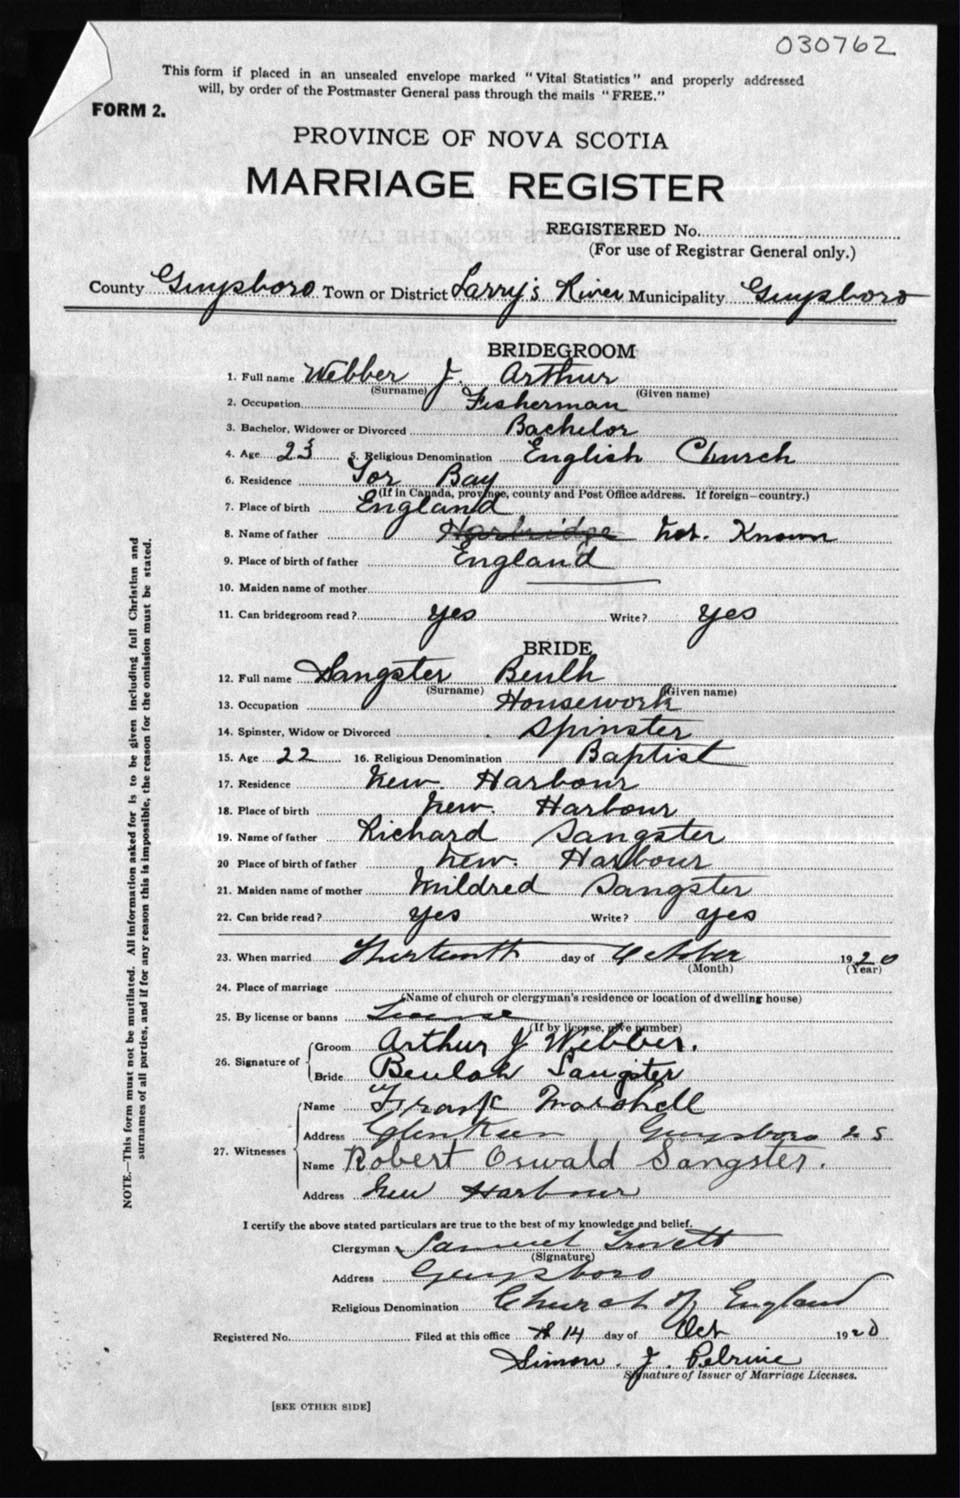 030762
This form if placed in an unsealed envelope marked "Vital Statistics" and properly addressed
will, by order of the Postmaster General pass through the mails "FREE."
FORM 2.
PROVINCE OF NOVA SCOTIA
MARRIAGE REGISTER
REGISTERED No.
(For use of Registrar General only.)
County Guysboro Town or District Larry's River Municipality Guysboro
BRIDEGROOM
1. Full name Webber J. Arthur
(Surname) (Given name)
2. Occupation Fisherman
3. Bachelor, Widower or Divorced Bachelor
4. Age 23 5. Religious Denomination English Church
6. Residence Tor Bay
(If in Canada, province, county and Post Office address. If foreign—country.)
7. Place of birth England
8. Name of father Harbridge Not. Known
9. Place of birth of father England
10. Maiden name of mother
11. Can bridegroom read? yes Write? yes
BRIDE
12. Full name Sangster Beulh
(Surname) (Given name)
13. Occupation Housework
14. Spinster, Widow or Divorced Spinster
15. Age 22 16. Religious Denomination Baptist
17. Residence New. Harbour
18. Place of birth New. Harbour
19. Name of father Richard Sangster
20 Place of birth of father New. Harbour
21. Maiden name of mother Mildred Sangster
22. Can bride read? yes Write? yes
23. When married Thirteenth day of October 1920
(Month) (Year)
24. Place of marriage
(Name of church or clergyman's residence or location of dwelling house)
25. By license or banns License
(If by license, give number)
26. Signature of Groom Arthur J Webber.
Bride Beulah Sangster
27. Witnesses
Name Frank Marshell
Address Glenkeen Guysboro
Name Robert Oswald Sangster.
Address New Harbour
I certify the above stated particulars are true to the best of my knowledge and belief.
Clergyman Samuel Trivett
(Signature)
Address Guysboro
Religious Denomination Church of England
Registered No. Filed at this office 14 day of Oct 1920
Simon. J. Pelrine
Signature of Issuer of Marriage Licenses.
[SEE OTHER SIDE]
NOTE.—This form must not be mutilated. All information asked for is to be given including full Christian and
surnames of all parties, and if for any reason this is impossible, the reason for the omission must be stated.